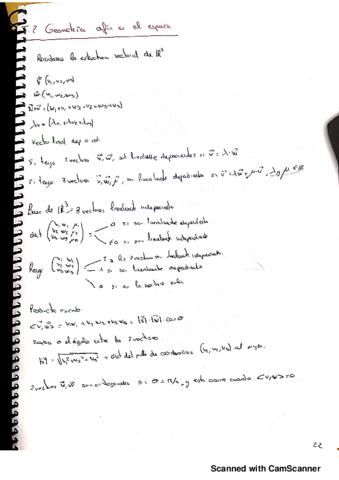 Geometría afín en el espacio
Recordamos la estructura vectorial de ℝ³
v⃗ (v₁, v₂, v₃)
w⃗ (w₁, w₂, w₃)
v⃗+w⃗ = (v₁+w₁, v₂+w₂, v₃+w₃)
λv = (λv₁, λv₂, λv₃)
S. tengo 2 vectores v⃗, w⃗, son linealmente dependientes si v⃗ = λ·w⃗
S. tengo 3 vectores v⃗, w⃗, μ⃗, son linealmente dependientes si
Base de ℝ³ = 3 vectores linealmente independientes
det = 0 si son linealmente dependientes
≠0 si son linealmente independientes
Rango 2 si los 2 vectores son linealmente independientes
1 si son linealmente dependientes
0 si es la matriz
Producto escalar
<v⃗, w⃗> = v₁w₁ + v₂w₂ + v₃w₃ = |v⃗|·|w⃗|·cos θ
siendo θ el ángulo entre los 2 vectores
|v⃗| = √v₁²+v₂²+v₃² = dist del pto de coordenadas (v₁, v₂, v₃) al origen
2 vectores v⃗, w⃗ son ortogonales si θ = π/2, y esto ocurre cuando <v,w> = 0
22
Scanned with CamScanner